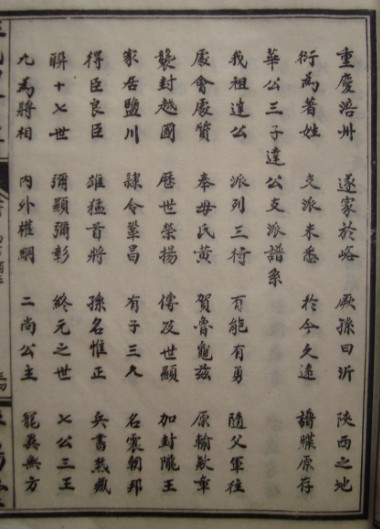 重慶涪州 遂家於峪 厥孫曰沂 陝西之地
衍為著姓 支派未悉 於今久遠 譜牒原存
華公三子達公支派譜系
我祖達公 派列三行 有能有勇 隨父軍往
會質 奉毋氏黃 賀魯龜茲 原輸款章
襲封越國 歷世榮揚 傳及世顯 加封隴王
家居鹽川 隸令鞏昌 有子三人 名震朝邦
得臣良臣 雄猛首將 孫名惟正 兵書藏
聯十七世 彌顯彌彰 終元之世 七公三王
九為將相 內外權綱 二尚公主 寵異無方